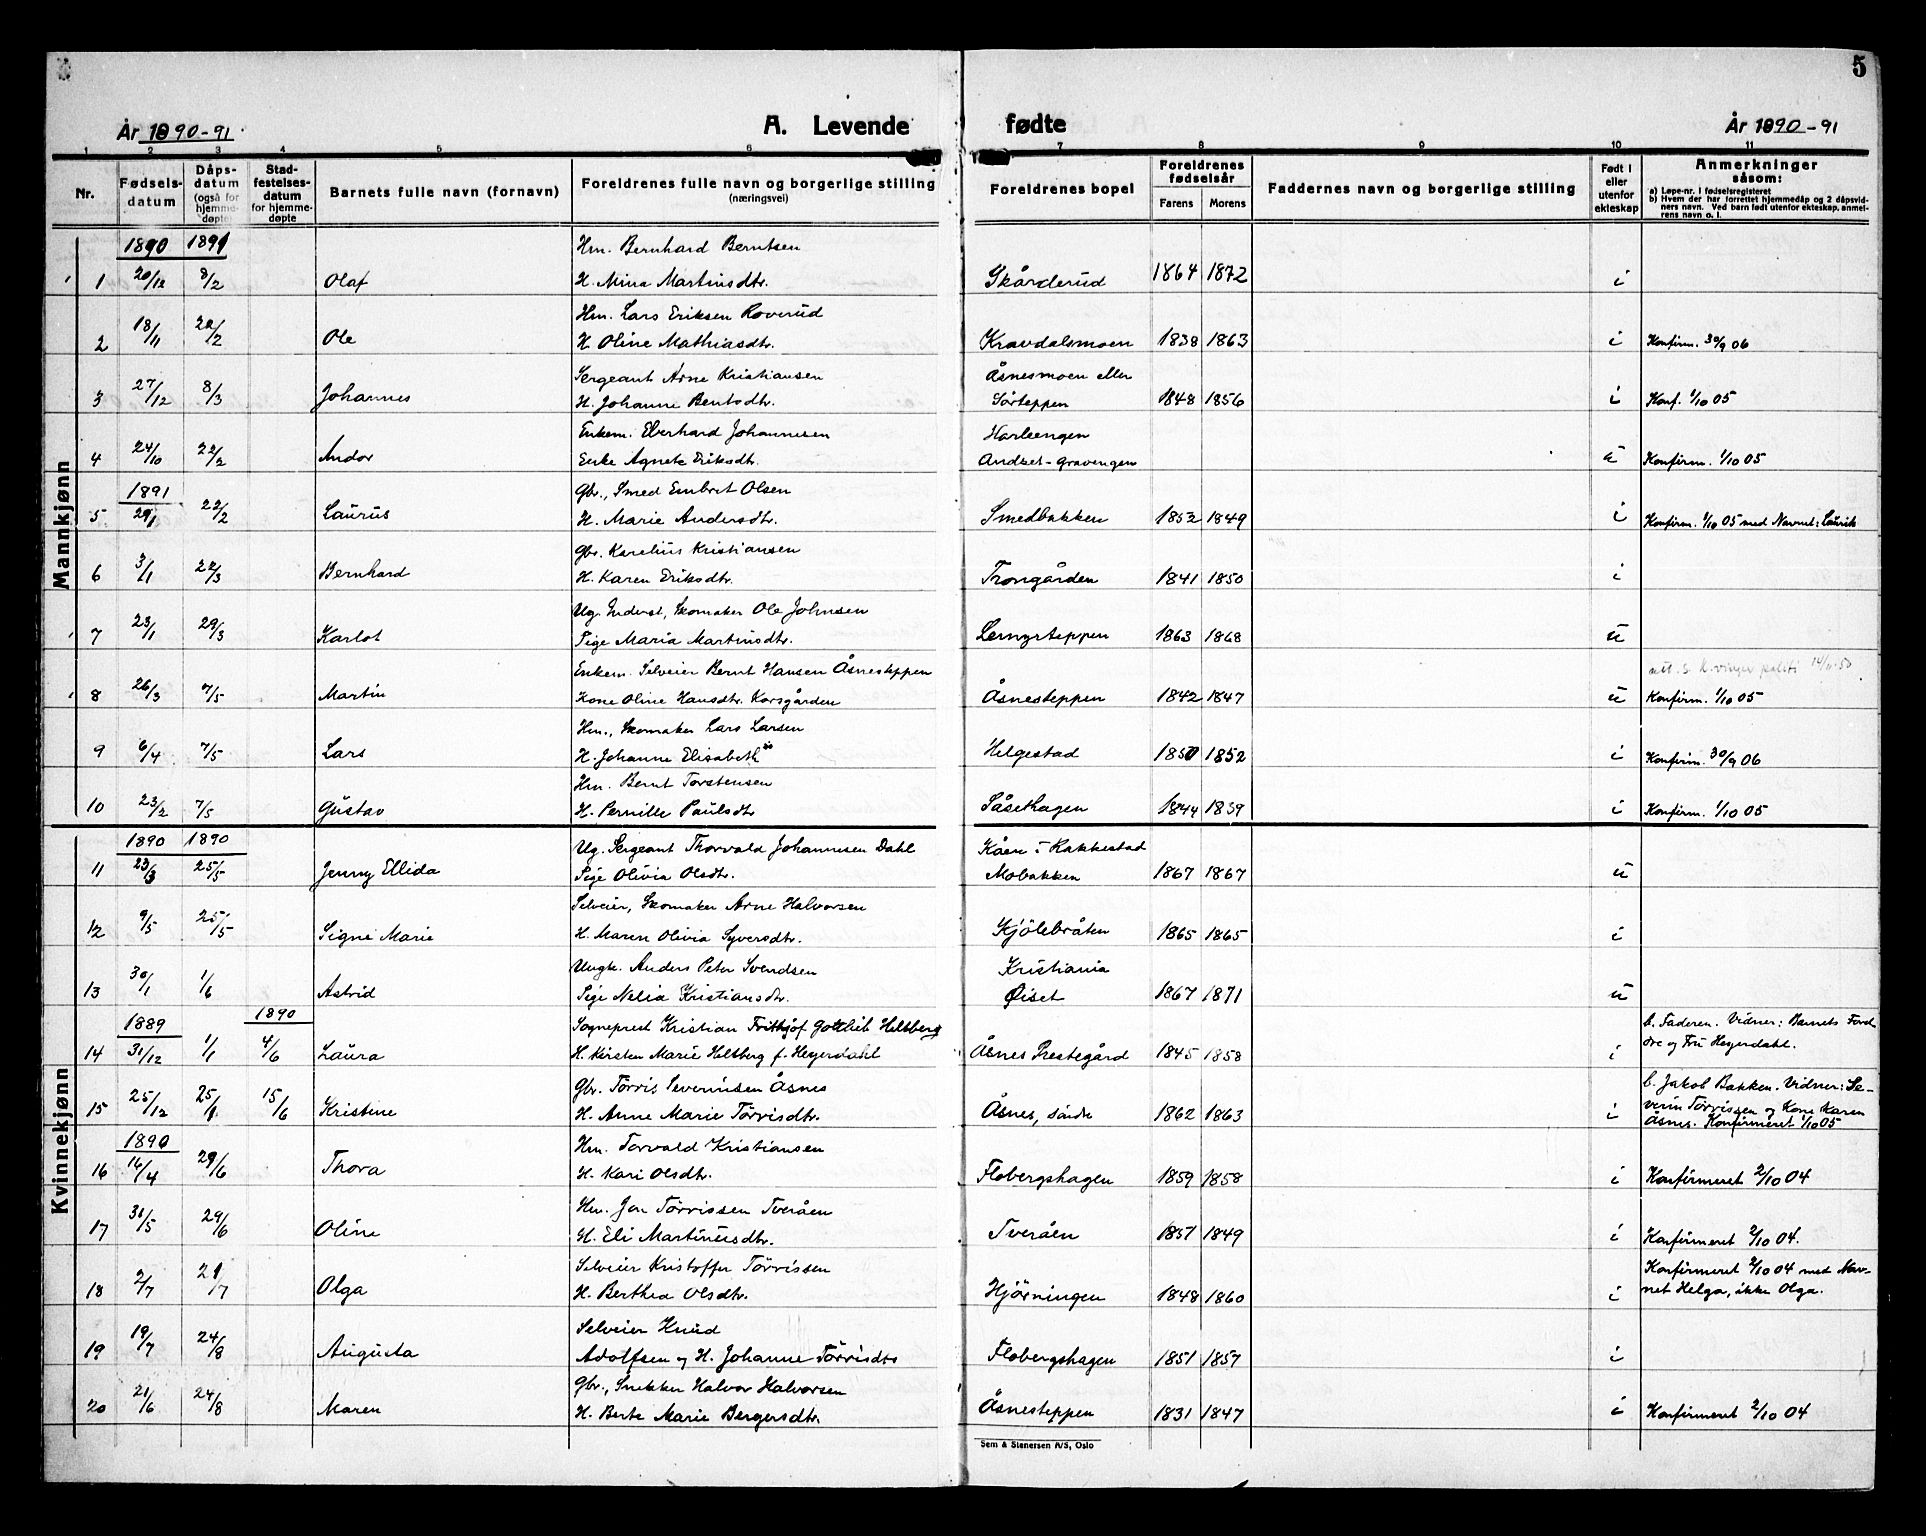 5
År 1890-91
A. Levende
fødte
År 1890-91
1 2 3 4 5 6 7 8 9 10 11
Nr.
Fødsels-
datum
Dåps-
datum
(også for
hjemme-
døpte)
Stad-
festelses-
datum
for hjemme-
døpte
Barnets fulle navn (fornavn)
Foreldrenes fulle navn og borgerlige stilling
(næringsvei)
Foreldrenes bopel
Foreldrenes
fødselsår
Farens Morens
Faddernes navn og borgerlige stilling
Født i
eller
utenfor
ekteskap
Anmerkninger
såsom:
a) Løpe-nr. i fødselsregisteret
b) Hvem der har forrettet hjemmedåp og 2 dåpsvid-
ners navn. Ved barn født utenfor ekteskap, anmel-
rens navn o. l.
Mannkjønn
1890 1891 Hm. Bernhard Berntsen
1 20/12 8/2 Olaf H. Mina Martinsdtr. Skårderud 1864 1872 i
18/11 20/2 Hm. Lars Eriksen Roverud
2 Ole H. Oline Mathiasdtr. Kravdalsmoen 1838 1863 i Konfirm. 30/9 06
27/12 8/3 Sergeant Arne Kristiansen Åsnesmoen eller
3 Johannes H. Johanne Berntsdtr. Sörteppen 1848 1856 i Konf. 1/10 05
24/10 22/2 Enkem. Eberhard Johannesen
4 Andor Enke Agnete Eriksdtr. u Konfirm. 1/10 05
1891 Gbr., Smed Embret Olsen
5 29/1 22/2 Laurus H. Marie Andersdtr. Smedbakken 1852 1849 i Konfirm. 1/10 05 med Navnet: Laurik
3/1 22/3 Gbr. Karelius Kristiansen
6 Bernhard H. Karen Eriksdtr. Trongården 1841 1850 i
23/1 29/3 Ug. Inderst, Skomaker Ole Johnsen
7 Karlot Pige Maria Martinsdtr. Lemyrteppen 1863 1868 u
26/3 7/5 Enkem. Selveier Bernt Hansen Åsnesteppen
8 Martin Kone Oline Hansdtr. Korsgården Åsnesteppen 1842 1847 u Konfirm. 1/10 05
6/4 7/5 Hm., Skomaker Lars Larsen
9 Lars H. Johanne Elisabeth Helgestad 1850 1852 i Konfirm. 30/9 06
23/2 7/5 Hm. Bernt Torstensen
10 Gustav H. Pernille Paulsdtr. Såsethagen 1844 1839 i Konfirm. 1/10 05
Kvinnekjønn
1890 1890 Ug. Sergeant Thorvald Johannesen Dahl Kåen i Rakkestad
11 23/3 25/5 Jenny Ellida Pige Olivia Olsdtr. Mobakken 1867 1867 u
9/5 25/5 Selveier, Skomaker Arne Halvorsen
12 Signe Marie H. Maren Olivia Syversdtr. Kjölebråten 1865 1865 i
30/1 1/6 Ungk. Anders Peter Svendsen Kristiania
13 Astrid Pige Nelia Kristiansdtr. Øiset 1867 1871 u
1889 1890 Sogneprest Kristian Frithjof Gottlieb Heltberg b. Faderen. Vidner: Barnets Foræl-
14 31/12 1/1 4/6 Laura H. Kirsten Marie Heltberg f. Heyerdahl Åsnes Prestegård 1845 1858 i dre og Fru Heyerdahl.
25/12 25/1 15/6 Gbr. Törris Severinsen Åsnes b. Jakob Bakken. Vidner: Se-
15 Kristine H. Anne Marie Törrisdtr. Åsnes, söndre 1862 1863 i verin Törrissen og Kone Karen
Åsnes. Konfirmeret 1/10 05
1890 Hm. Torvald Kristiansen
16 16/4 29/6 Thora H. Kari Olsdtr. Flobergshagen 1859 1858 i Konfirmeret 2/10 04
31/5 29/6 Hm. Jon Törrissen Tveråen
17 Oline H. Eli Martinusdtr. Tveråen 1857 1849 i Konfirmeret 2/10 04.
2/7 21/7 Selveier Kristoffer Törrissen Konfirmeret 2/10 04 med Nav-
18 Olga H. Berthea Olsdtr. Hjörningen 1848 1860 i net Helga, ikke Olga.
19/7 24/8 Selveier Knud
19 Augusta Adolfsen og H. Johanne Törrisdtr Flobergshagen 1851 1857 i
21/6 24/8 Gbr., Snekker Halvor Halvorsen
20 Maren H. Berte Marie Bergersdtr. Åsnesteppen 1831 1847 i Konfirmeret 2/10 04
Sem & Stenersen A/S, Oslo